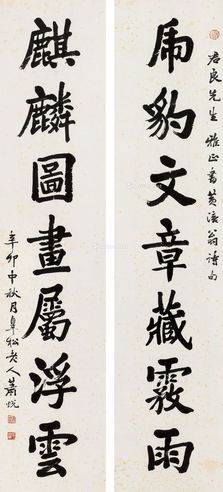 君良先生雅正書黃涪翁詩句
虎豹文章藏霧雨
麒麟圖畫屬浮雲
辛卯中秋月松老人蕭悅